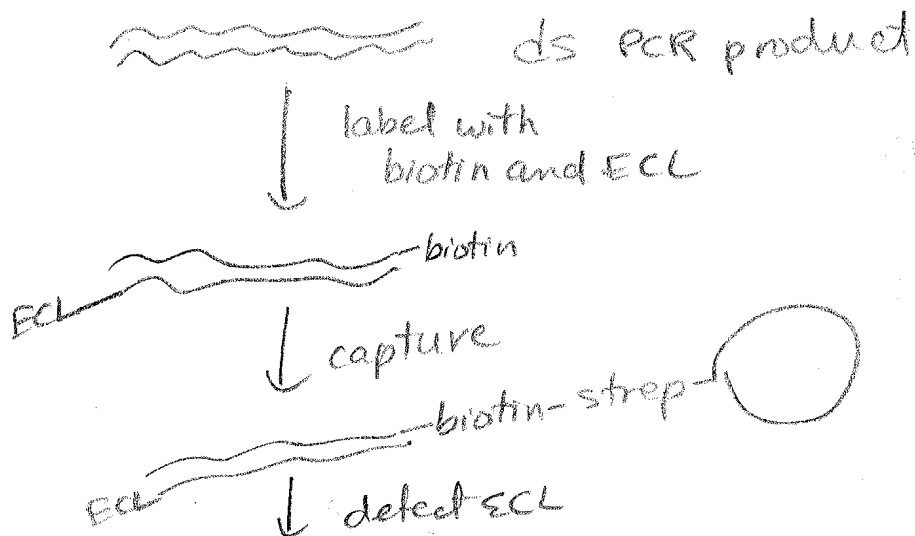 ds PCR product
label with
biotin and ECL
biotin
ECL
capture
biotin-strep-
ECL
detect ECL